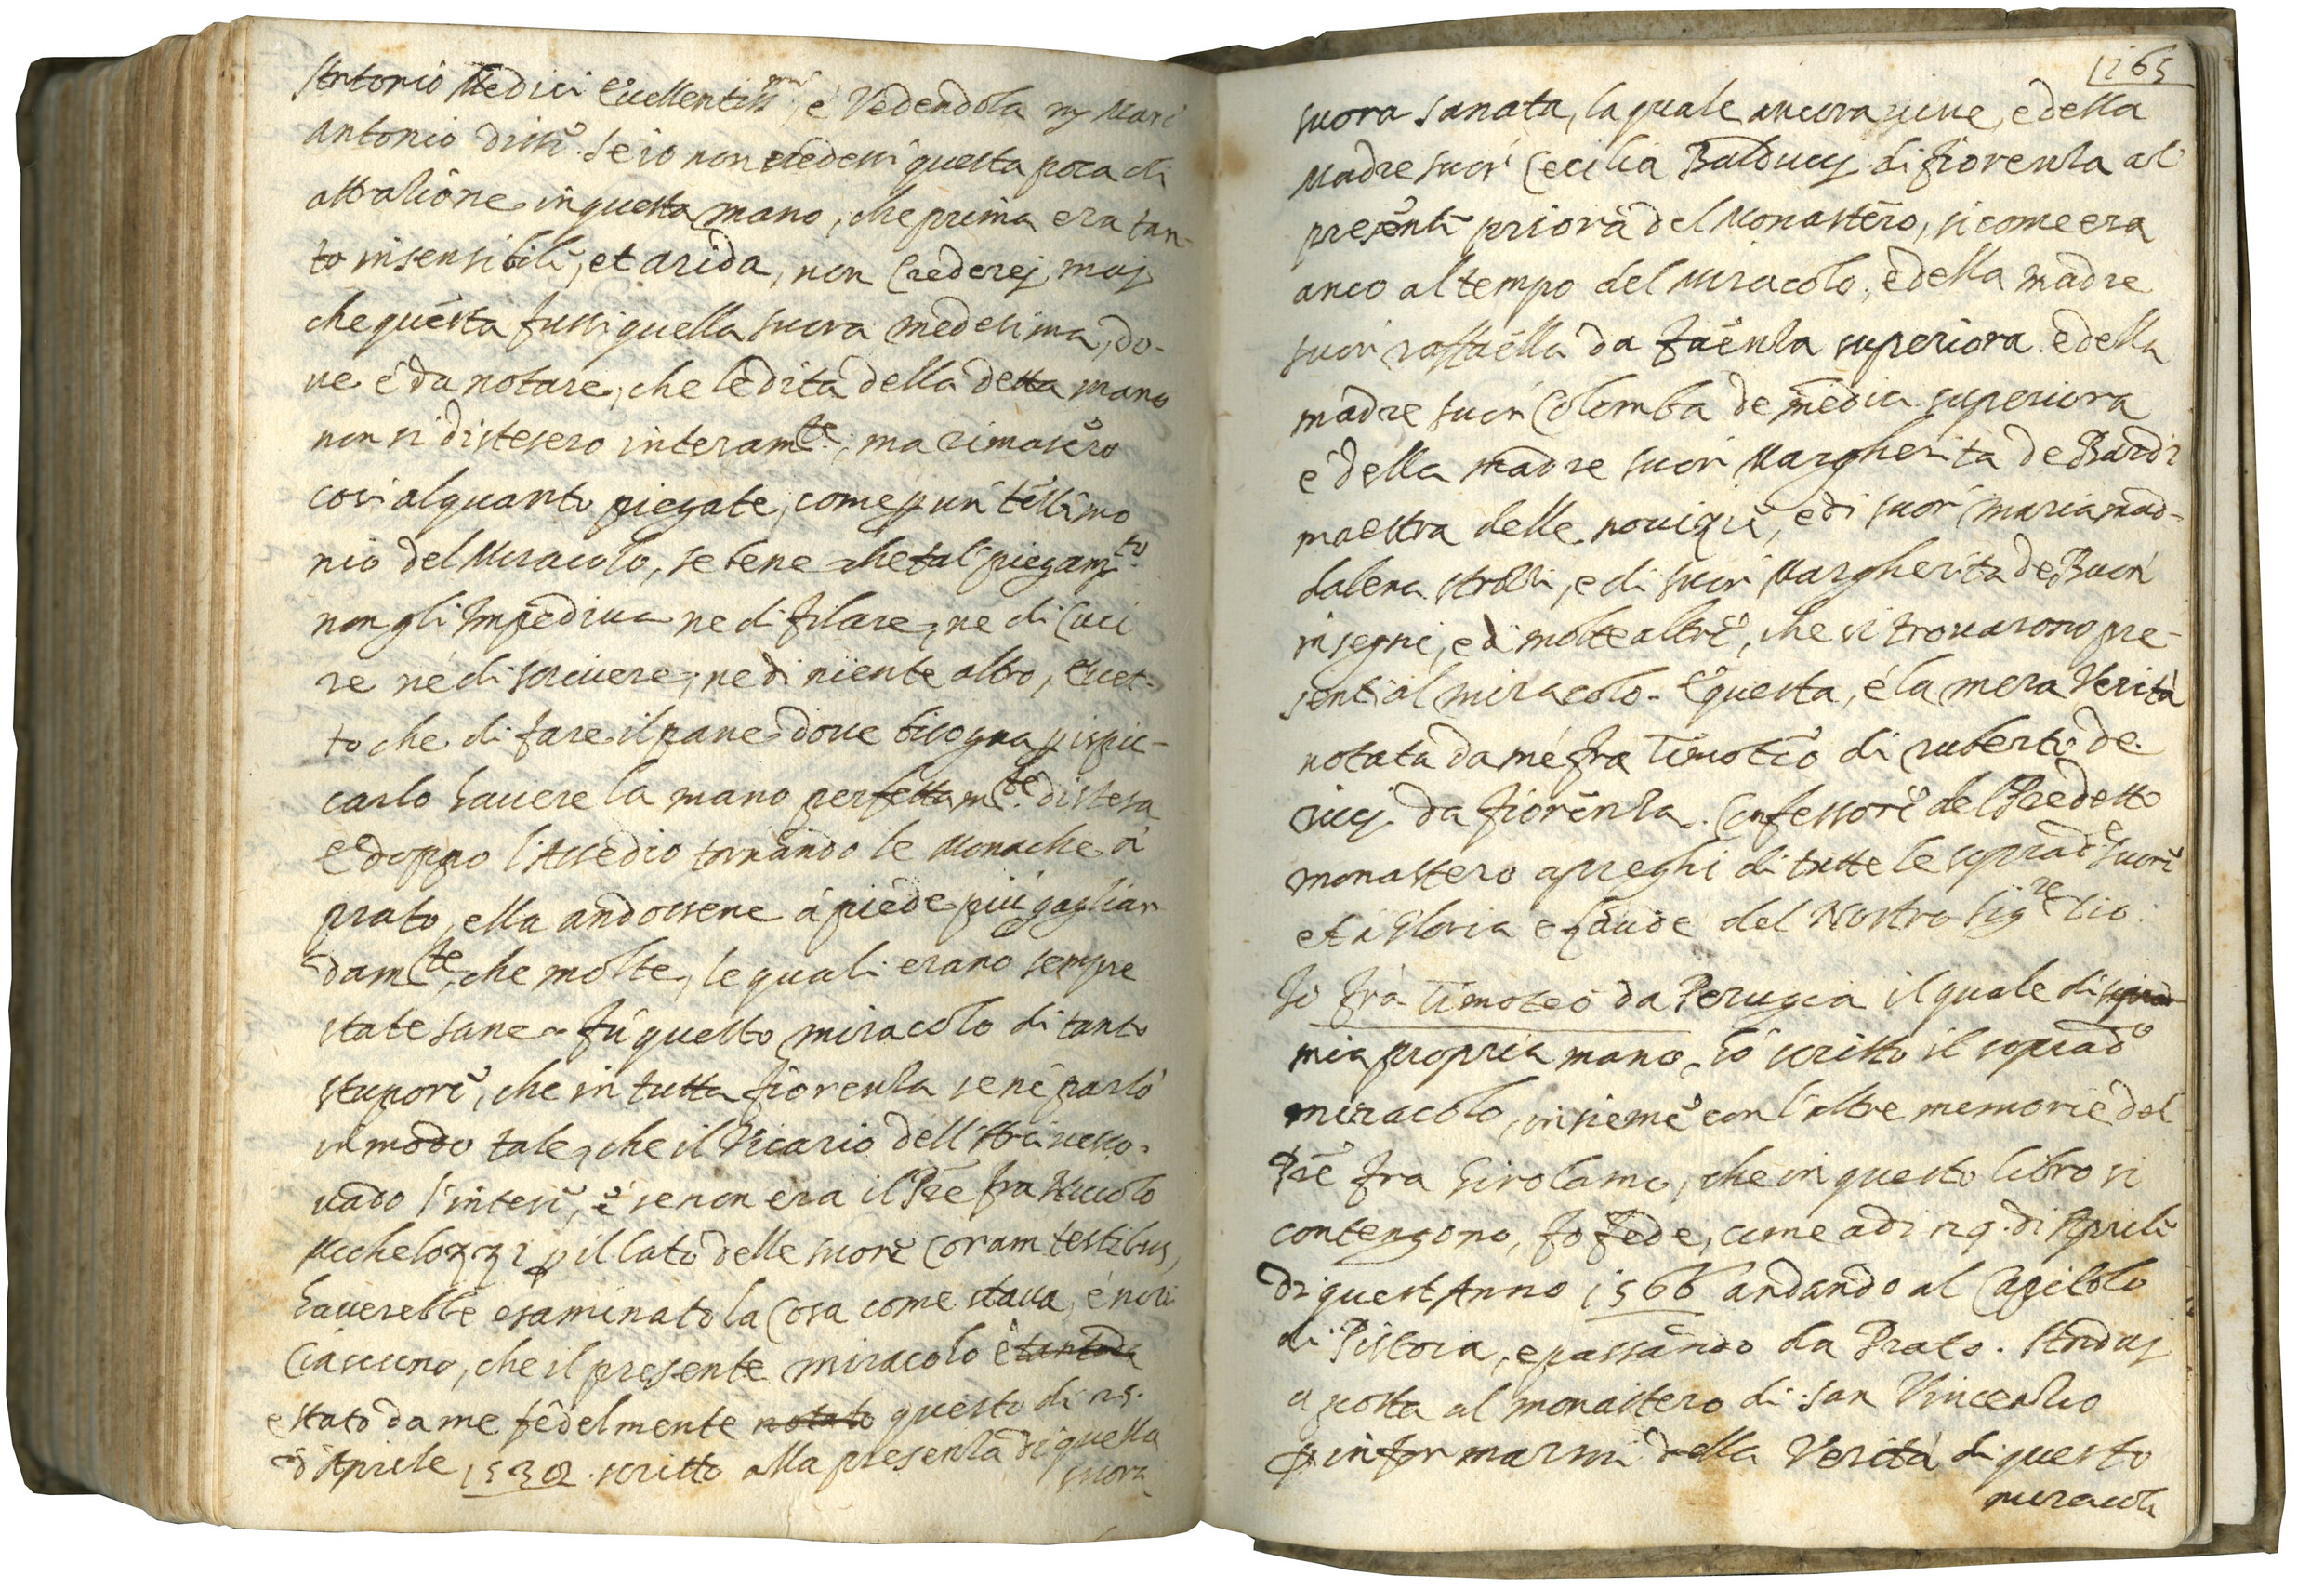 Antonio Medici Eccellentissmi, e Vedendola mr Marc
Antonio disse. Se io non vedessi questa poca di
attratione in questa mano, che prima era tan-
to insensibile, et arida, non Crederej maj
che questa fussi quella suora medesima, do-
ue é da notare, che le dita della detta mano
non si distesero interamte, ma rimasero
cosi alquanto piegate, come p un testimo
nio del Miracolo, se bene che tal piegamto
non gli Impediua ne di filare, ne di Cuci
re ne di scriuere, ne di niente altro, eccet-
to che di fare il pane doue bisogna p ispic-
carlo hauere la mano perfettamte distesa
E doppo l'Assedio tornando le Monache á
prato, ella andossene á piede piú gagliar
damte, che molte, le quali erano sempre
state sane. fú questo miracolo di tanto
stupore, che in tutta fiorenza se ne parló
in modo tale, che il Vicario dell'Arciuesco-
uado l'intese, e se non era il Pre fra Niccolo
Michelozzi p il lato delle suore Coram testibus,
hauerebbe esaminato la Cosa come staua, é noti
Ciascuno, che il presente miracolo é tantoda
e stato da me fedelmente notato questo di 25.
d'Aprile 1532. scritto alla presenza di quella
suora
265
suora sanata, la quale ancora uiue, e della
Madre suor Cecilia Balducj di fiorenza al
presente priora del Monastero, si come era
anco al tempo del Miracolo, e della madre
suor raffaella da faenza superiora. e della
madre suor Colomba de medici superiora
e della madre suor Margherita de Bardi
maestra delle nouizie, e di suor maria mad-
dalena strozzi, e di suor Margherita de Buon
insegni, e di molte altre, che si trouarono pre-
senti al miracolo. E questa, é la mera Veritá
notata da me fra Timoteo di ruberto de
ricci da fiorenza. Confessore del Predetto
monastero a preghi di tutte le sopradte suore
et á Gloria e laude del Nostro Sigre Dio.
Io frá Timoteo da Perugia il quale di soprad
mia propria mano hó scritto il sopradº
miracolo, insieme con l'altre memorie del
Pre fra Girolamo, che in questo libro si
contengono, fo fede, come adi 29. di Aprile
di quest Anno 1566 andando al Capitolo
di Pistoia, e passando da Prato. Andaj
a posta al monastero di san Vincentio
p informarmi della Veritá di questo
miracolo